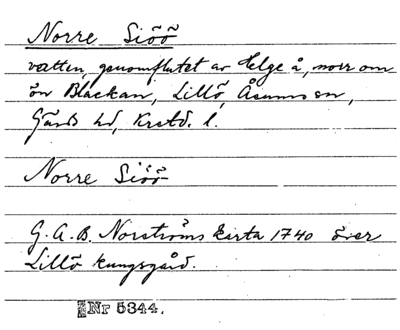 Norre Siöö
vatten, genomflutet av Helge å, norr om
ön Bläckan, Lillö, Åsums sn,
Gärds hd, Krstd. l.
Norre Siöö
G. A. B. Norströms karta 1740 över
Lillö kungsgård.
Nr 5344.